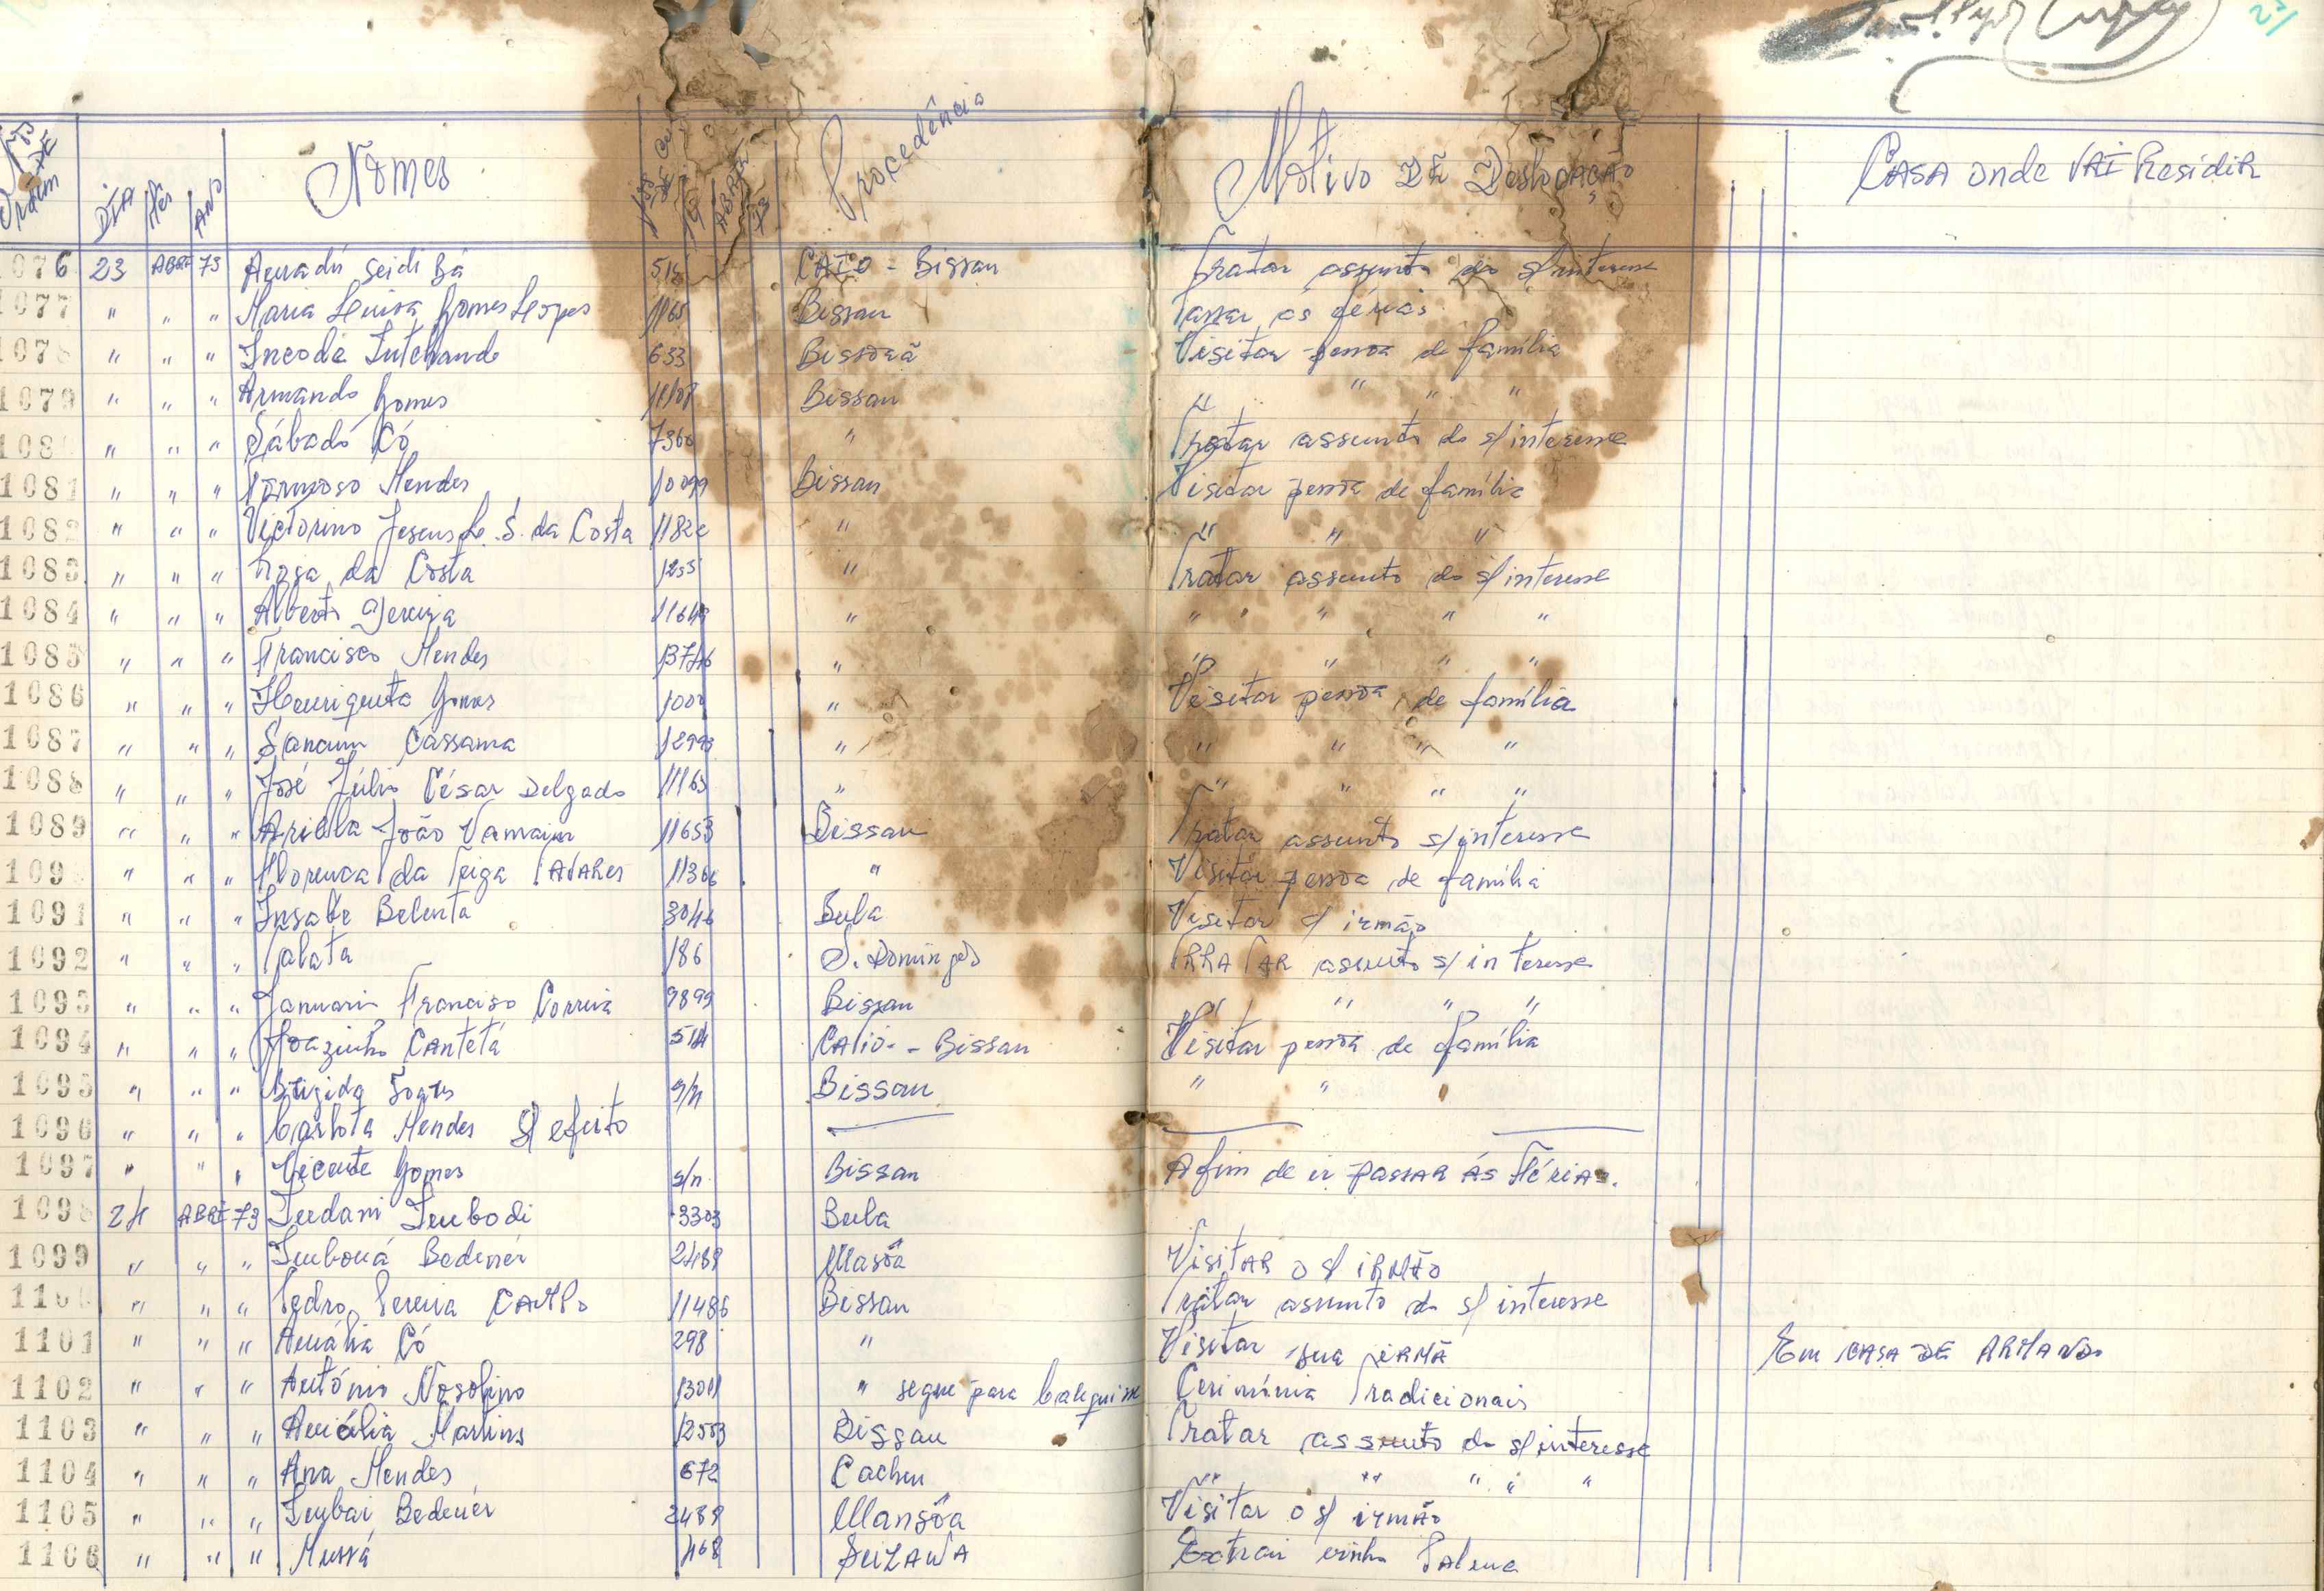 Nº DE Ordem DIA Mês ANO Nomes Procedência Motivo DE Deslocação CASA onde VAI Residir
1076 23 ABRI 73 Amadú Seidi Bá 515 CAIÓ - Bissau Tratar assunto do s/interesse
1077 " " " Maria Luisa Gomes Lopes 1165 Bissau Passar as férias
107 " " " Incoda Intchando 633 Bissorã Visitar pessoa de família
1079 " " " Armando Gomes Bissau " " " "
108 " " " Sábado Có 7360 " Tratar assunto do s/interesse
1081 " " " Formoso Mendes 10099 Bissau Visitar pessoa de família
1082 " " " Victorino Jesus L. S. da Costa 1182 " " " "
1083 " " " Rosa da Costa 1255 " Tratar assunto do s/interesse
1084 " " " Alberto Pereira 11649 " " " " " "
1085 " " " Francisco Mendes 13746 " " " " "
1086 " " " Henriqueta Gomes 1000 " Visitar pessoa de família
1087 " " " Sancum Cassama 12993 " " " " "
1088 " " " José Júlio César Delgado 11163 " " " " "
1089 " " " João Vamain 11653 Bissau Tratar assunto s/interesse
109 " " " Florença da Veiga TAVARES 11366 " Visitar pessoa de família
1091 " " " Insabe Belenta 3046 Bula Visitar s/ irmão
1092 " " " 186 S. Domingos TRATAR assunto s/interesse
1093 " " " Januario Francisco Correia 9899 Bissau " " " "
1094 " " " Joazinho CANTETÁ 514 CATIÓ - Bissau Visitar pessoa de família
1095 " " " Brigida Soares s/n Bissau " "
1096 " " " Carlota Mendes S/ efeito
1097 " " " Vicente Gomes s/n Bissau Afim de ir PASSAR ÁS FÉRIAS.
1098 24 ABRI 73 Indani Imbodi 3303 Bula
1099 " " " Imboná Bedenér 2489 Masôa VisitAR o s/ iRMÃO
110 " " " Pedro Pereira CAMPO 11486 Bissau Tratar assunto do s/interesse
1101 " " " Amália Có 298 " Visitar sua iRMÃ Em CASA DE ARMANDO
1102 " " " António Nosolino 1301 " segue para Calequisse Cerimónia Tradicionais
1103 " " " Amélia Martins 12553 Bissau Tratar assunto do s/interesse
1104 " " " Ana Mendes 672 Cacheu " " " " "
1105 " " " Imbai Bedenér 2489 Mansôa Visitar o s/ irmão
1106 " " " Mussá 468 SUZANA Extrair vinho Palma